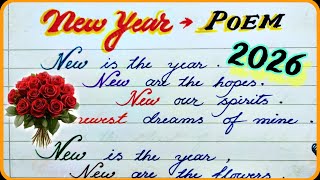 New Year → POEM
2026
New is the year.
New are the hopes.
New our spirits.
newest dreams of mine.
New is the year,
New are the flowers.